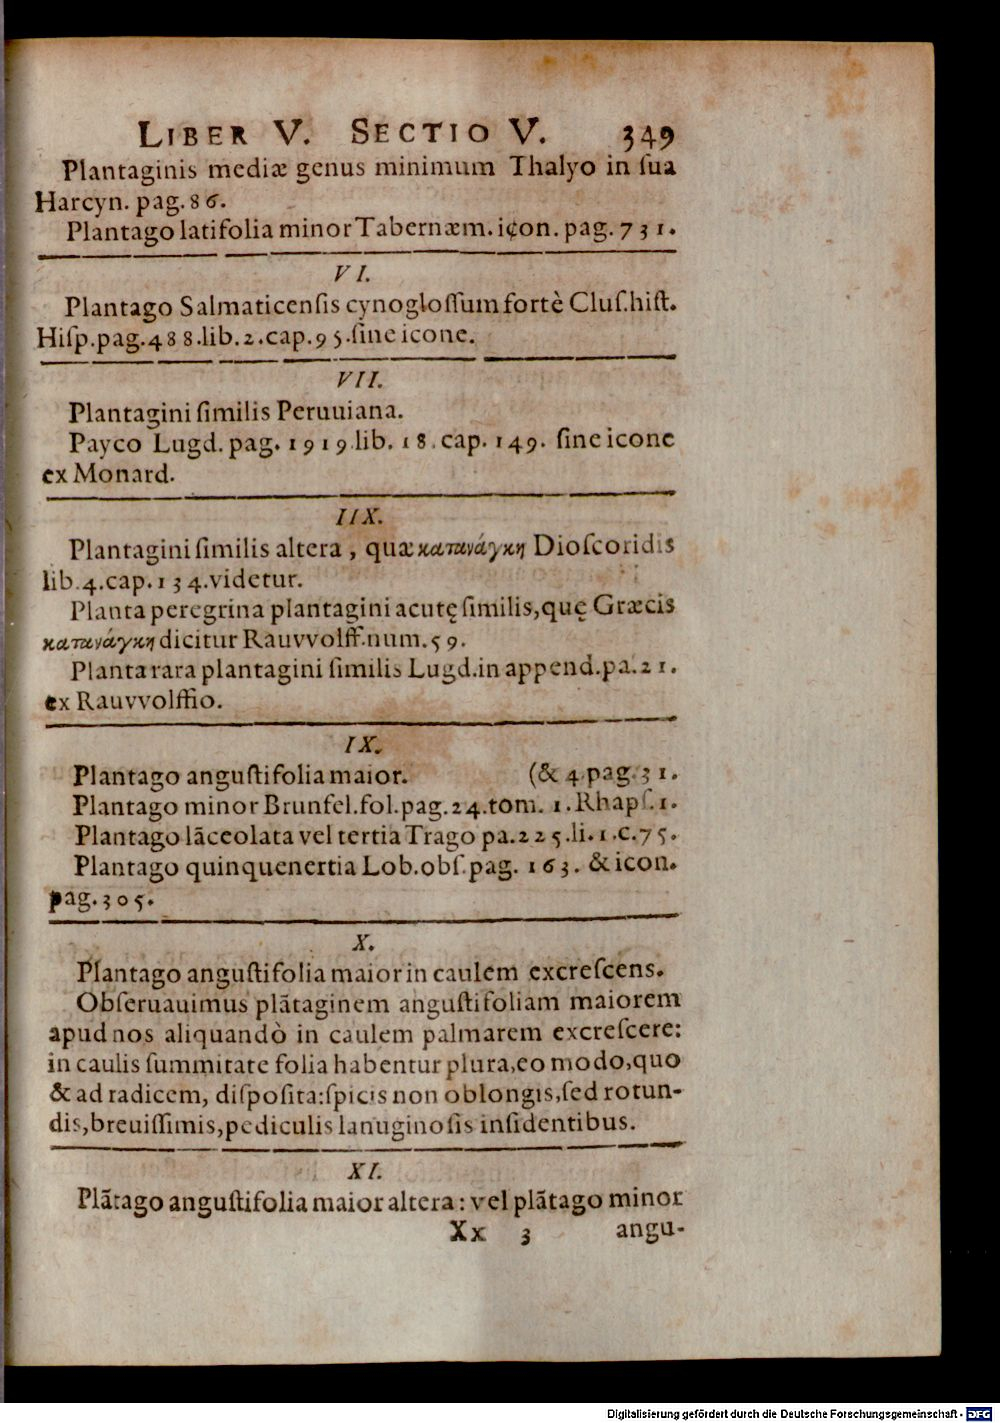 LIBER V. SECTIO V. 349
Plantaginis mediæ genus minimum Thalyo in ſua
Harcyn. pag. 86.
Plantago latifolia minor Tabernæm. icon. pag. 731.
VI.
Plantago Salmaticenſis cynogloſſum fortè Cluſ. hiſt.
Hiſp. pag. 488. lib. 2. cap. 95. ſine icone.
VII.
Plantagini ſimilis Peruuiana.
Payco Lugd. pag. 1919 lib. 18. cap. 149. ſine icone
ex Monard.
IIX.
Plantagini ſimilis altera, quæ κατανάγκη Dioſcoridis
lib. 4. cap. 134. videtur.
Planta peregrina plantagini acutę ſimilis, quę Græcis
κατανάγκη dicitur Rauvvolff. num. 59.
Planta rara plantagini ſimilis Lugd. in append. pa. 21.
ex Rauvvolffio.
IX.
Plantago anguſtifolia maior. (& 4 pag. 31.
Plantago minor Brunfel. fol. pag. 24. tom. 1. Rhapſ. 1.
Plantago lāceolata vel tertia Trago pa. 225. li. 1. c. 75.
Plantago quinquenertia Lob. obſ. pag. 163. & icon.
pag. 305.
X.
Plantago anguſtifolia maior in caulem excreſcens.
Obſeruauimus plātaginem anguſtifoliam maiorem
apud nos aliquandò in caulem palmarem excreſcere:
in caulis ſummitate folia habentur plura, eo modo, quo
& ad radicem, diſpoſita: ſpicis non oblongis, ſed rotun-
dis, breuiſſimis, pediculis lanuginoſis inſidentibus.
XI.
Plātago anguſtifolia maior altera: vel plātago minor
Xx 3 angu-
Digitalisierung gefördert durch die Deutsche Forschungsgemeinschaft - DFG